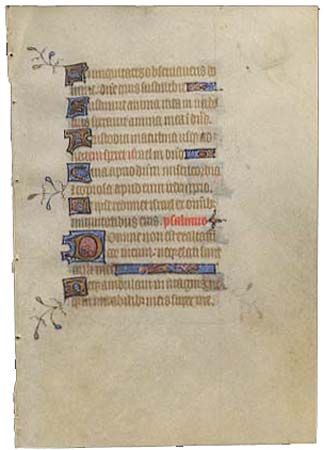 Si iniquitates observaveris do
mine: dñe quis sustinebit
Sustinuit anima mea in verbo
eius speravit anima mea i dño
A custodia matutina usq ad
noctem speret israel in dño
Quia apud dñm misericordia
et copiosa apud eum redemptio
Et ipse redimet israel ex omib
iniquitatibus eius. psalmus
Domine non est exaltatū
cor meum: neq elati sunt
oculi mei
Neq ambulavi in magnis
in mirabilibus super me.